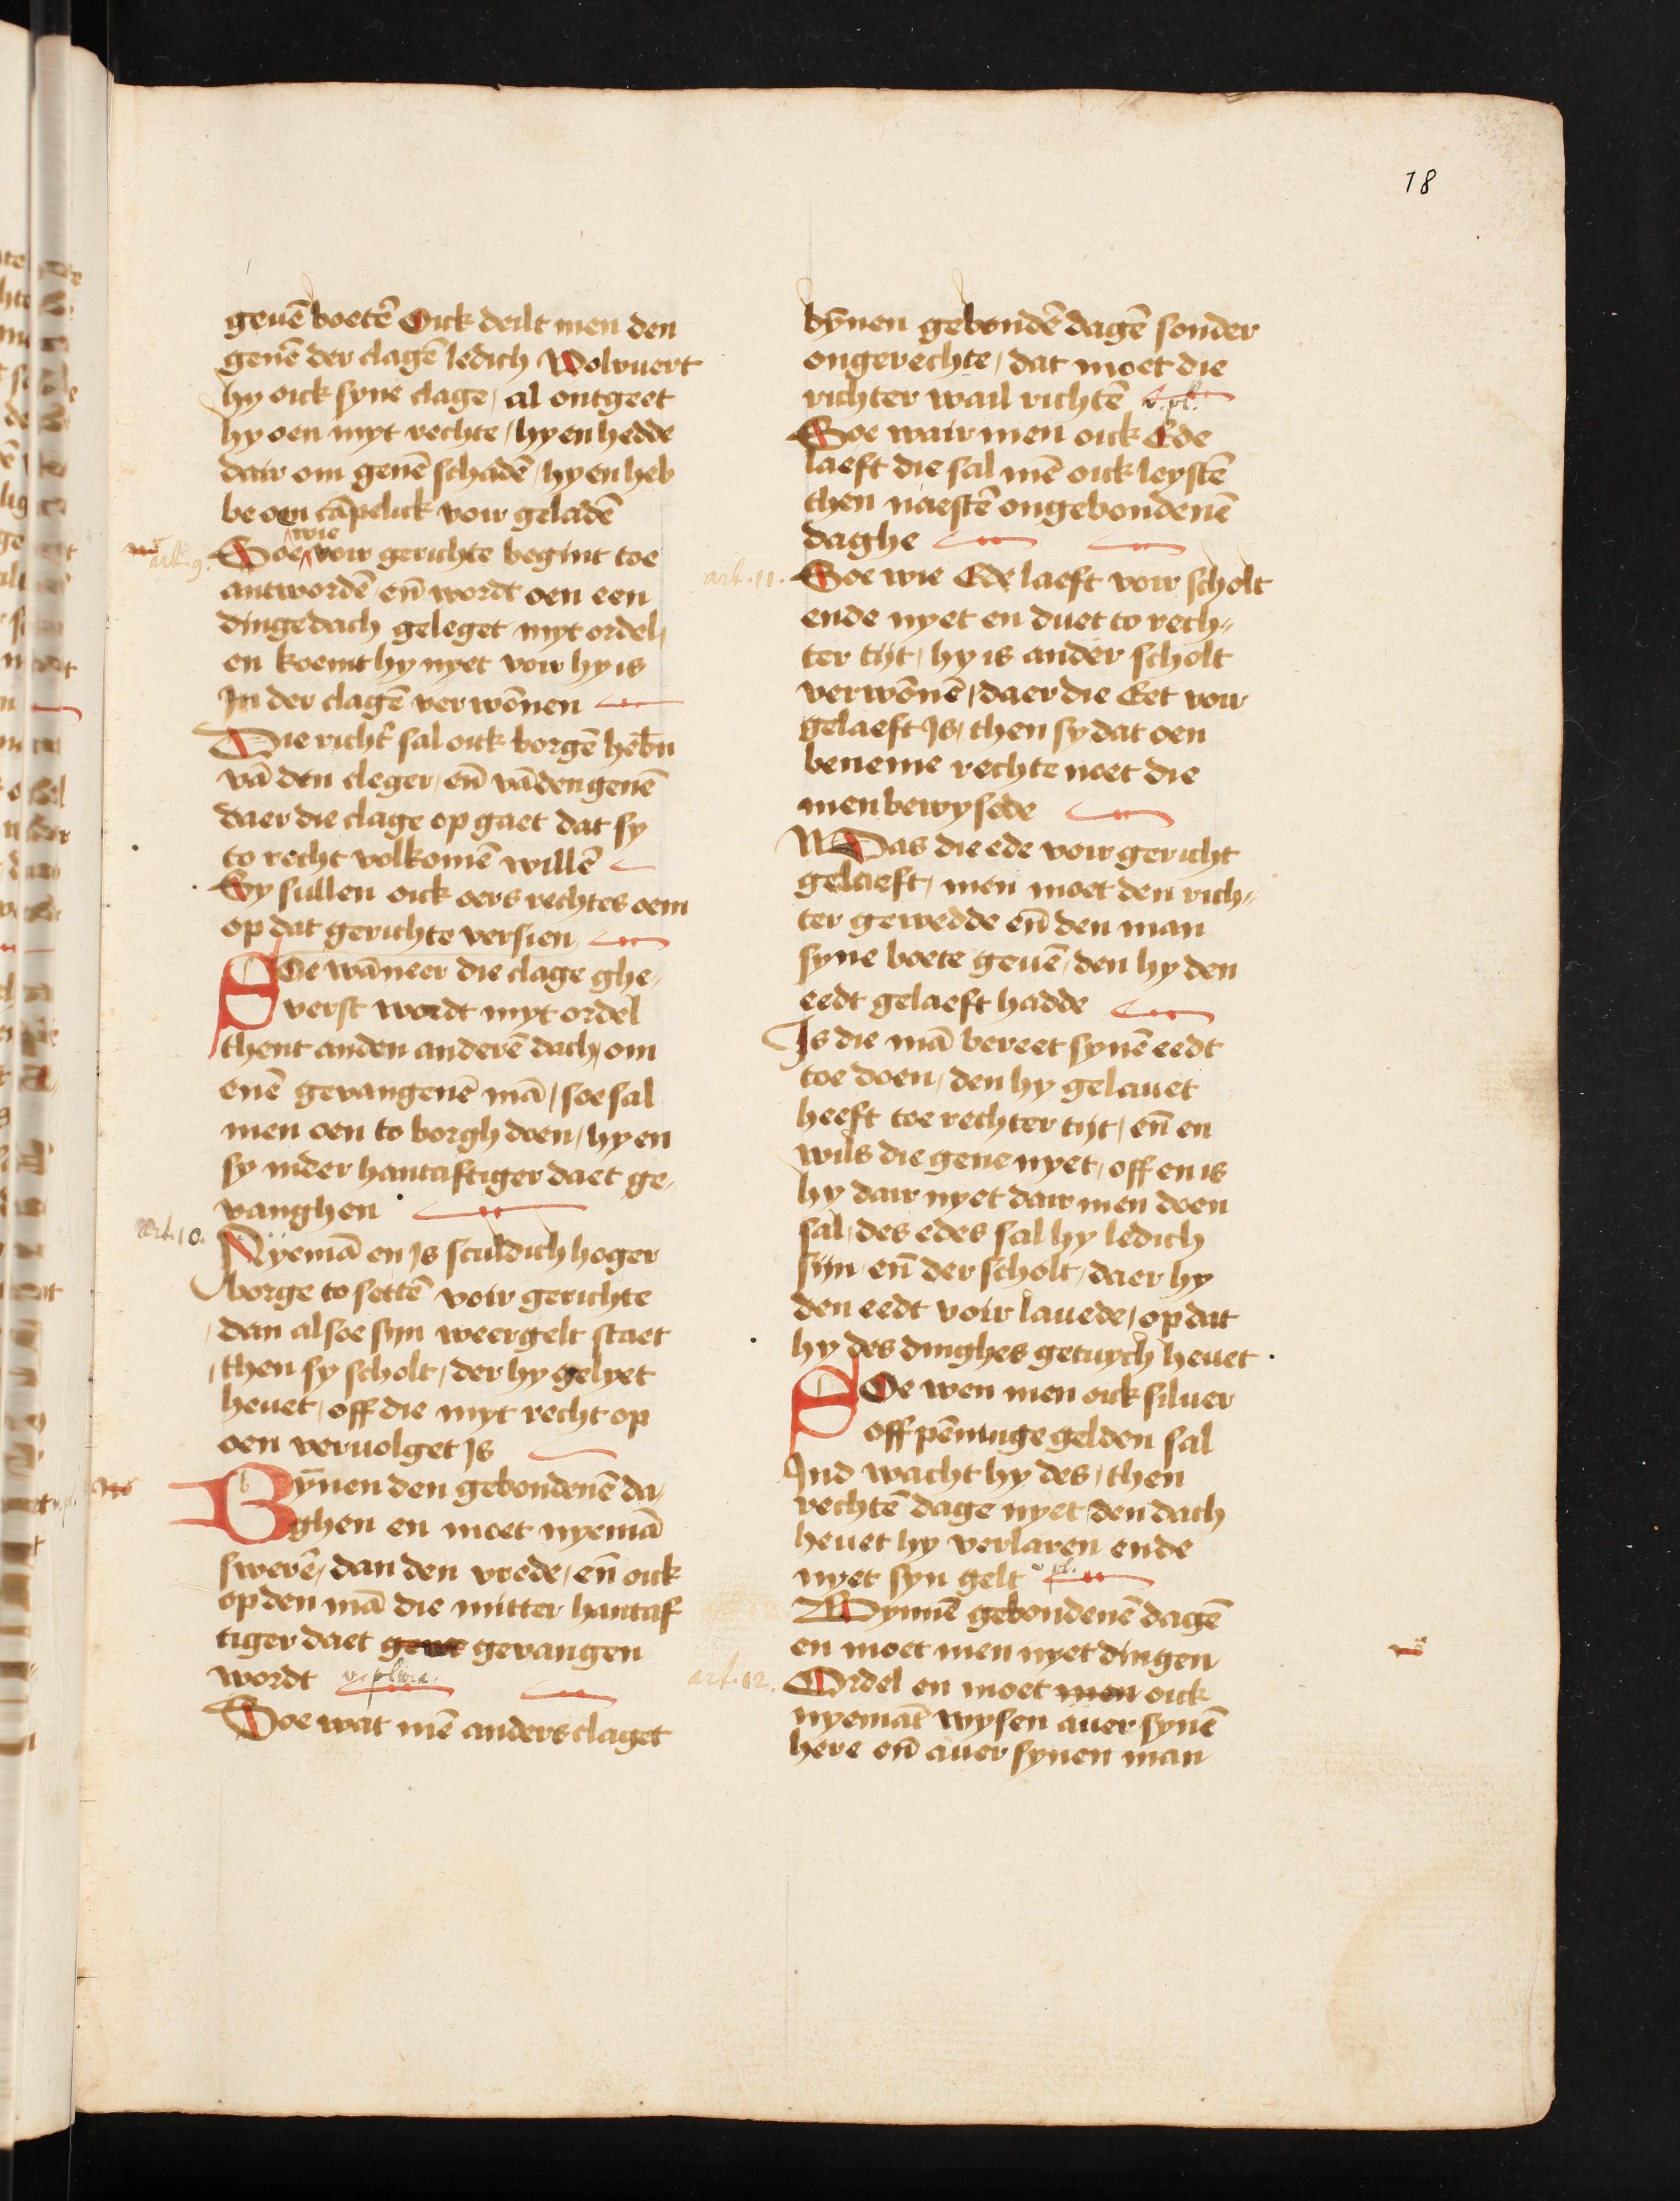 18
geuē boetē Oick deilt men den
genē der clagē ledich Wolvuert
hy oick syne clage / al ontgeet
hy oen myt rechte / hy en hedde
dair om genē schadē / hy en heb
be oen cāpelick voir geladē
art. 9. Soe wie voir gerichte begint toe
antwordē en̄ wordt oen een
dingedach geleget myt ordel /
en koemt hy nyet voir hy is
In der clagē verwōnen
Die richt' sal oick borgē hebn̄
vā den cleger / en̄ vā den genē
daer die clage op gaet dat sy
to recht volkomē willē
Sy sullen oick oers rechtes oem
op dat gerichte versien
SOe wāneer die clage ghe/
verst wordt myt ordel
thent anden anderē dach / om
enē gevangenē mā / soe sal
men oen to borgh doen / hy en
sy inder hantaftiger daet ge/
vanghen
art. 10. Nyemā en Is sculdich hoger
borge to settē voir gerichte
dan alsoe syn weergelt staet
then sy scholt / der hy gelyet
heuet / off die myt recht op
oen vervolget Is
Bȳnen den gebondenē da/
ghen en moet nyemā
swerē / dan den vrede / en̄ oick
op den mā die mitter hantaf
tiger daet gevangen
wordt
Soe wat mē anders claget
bȳnen gebondē dagē sonder
ongerechte / dat moet die
richter wail richtē v. pl.
Soe wair men oick Ede
laeft die sal mē oick leystē
then naestē ongebondenē
daghe
art. 11. Soe wie Ede laeft voir scholt
ende nyet en duet to rech//
ter tijt / hy is ander scholt
verwōnē / daer die Eet voir
gelaeft Is / then sy dat oen
beneme rechte noet die
men bewysede
Was die ede voir gericht
gelaeft / men moet den rich//
ter gewedde en̄ den man
syne boete geuē / den hy den
eedt gelaeft hadde
Is die mā bereet synē eedt
toe doen / den hy gelauet
heeft toe rechter tijt / en̄ en
wils die gene nyet / off en is
hy dair nyet dair men doen
sal / des edes sal hy ledich
sijn en̄ der scholt / daer hy
den eedt voir lauede / op dat
hy des dinghes getuych heuet .
SOe wen men oick siluer
off pēninge gelden sal
Ind wacht hy des / then
rechtē dage nyet den dach
heuet hy verlaren ende
nyet syn gelt v. pl.
Bynnē gebondenē dagē
en moet men nyet dingen
art. 12. Ordel en moet men oick
nyemāt wysen auer synē
here en̄ auer synen man